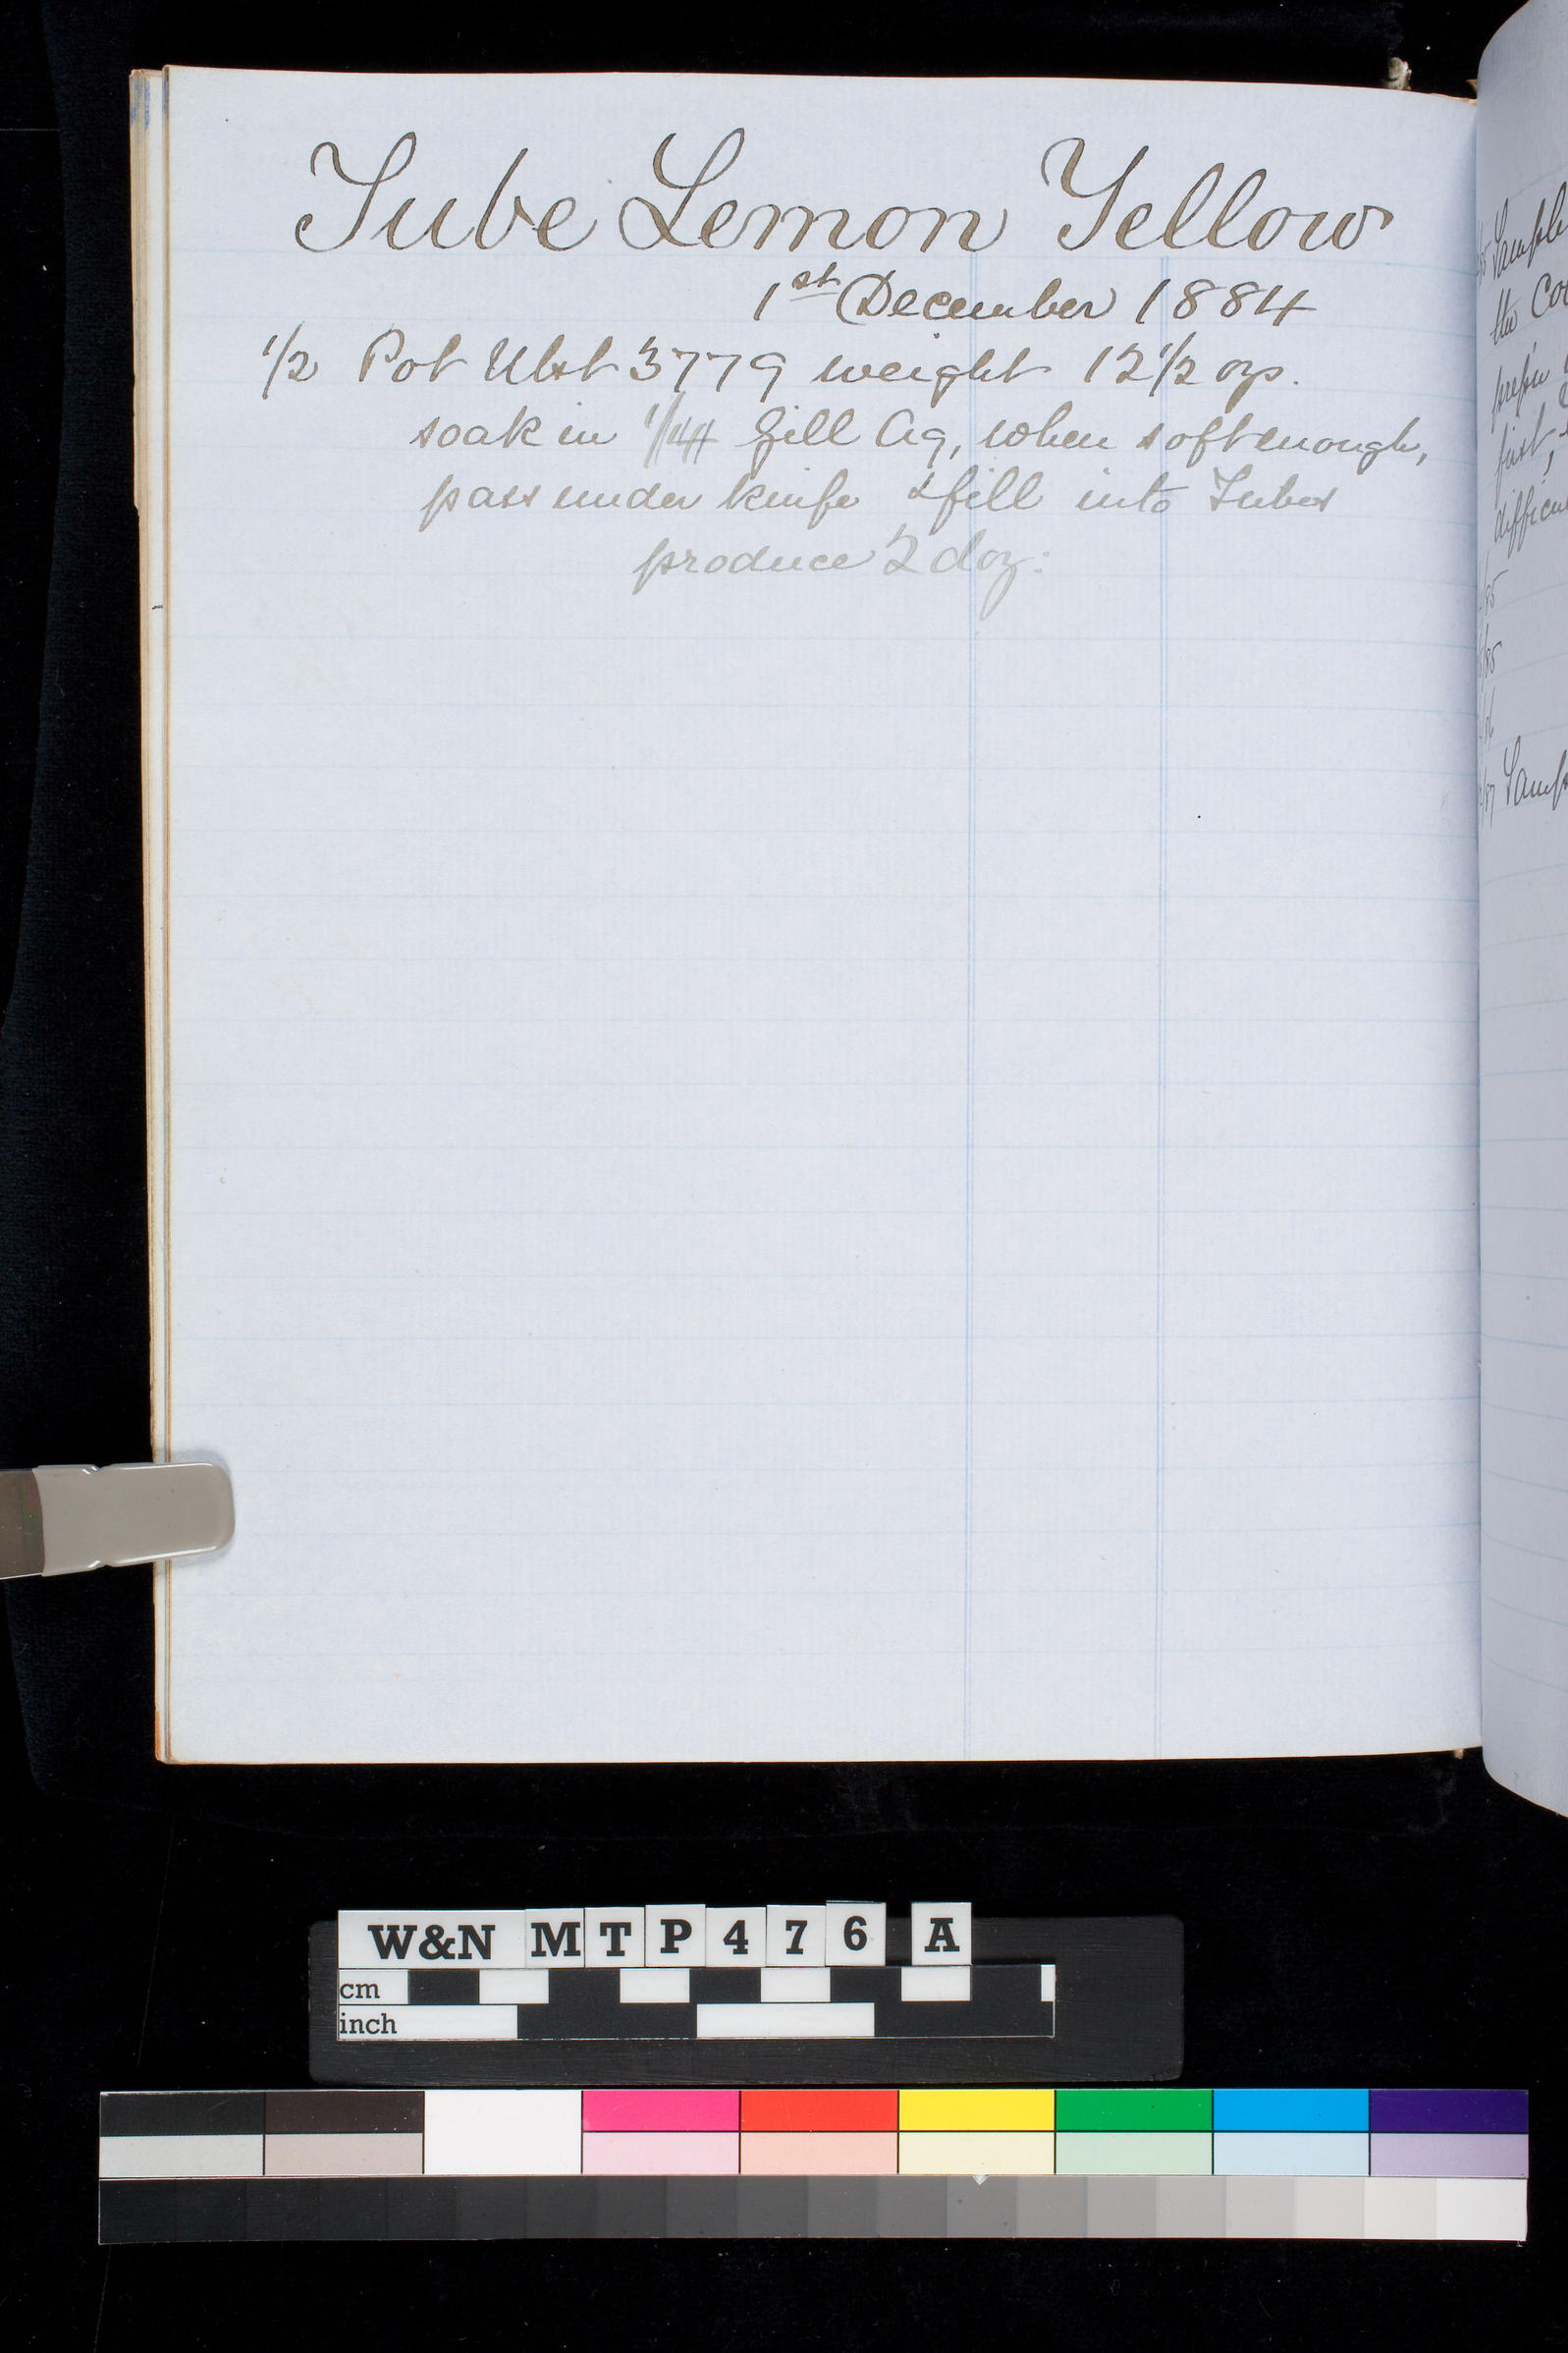 Tube Lemon Yellow
1st December 1884
1/2 Pot Ulst 3779 weight 12 1/2 ozs.
soak in 1/4 Gill Aq, when soft enough,
pass under knife & fill into Tubes
produce 2 doz:
Sample
the
prefer
first
W&N MTP476 A
cm
inch